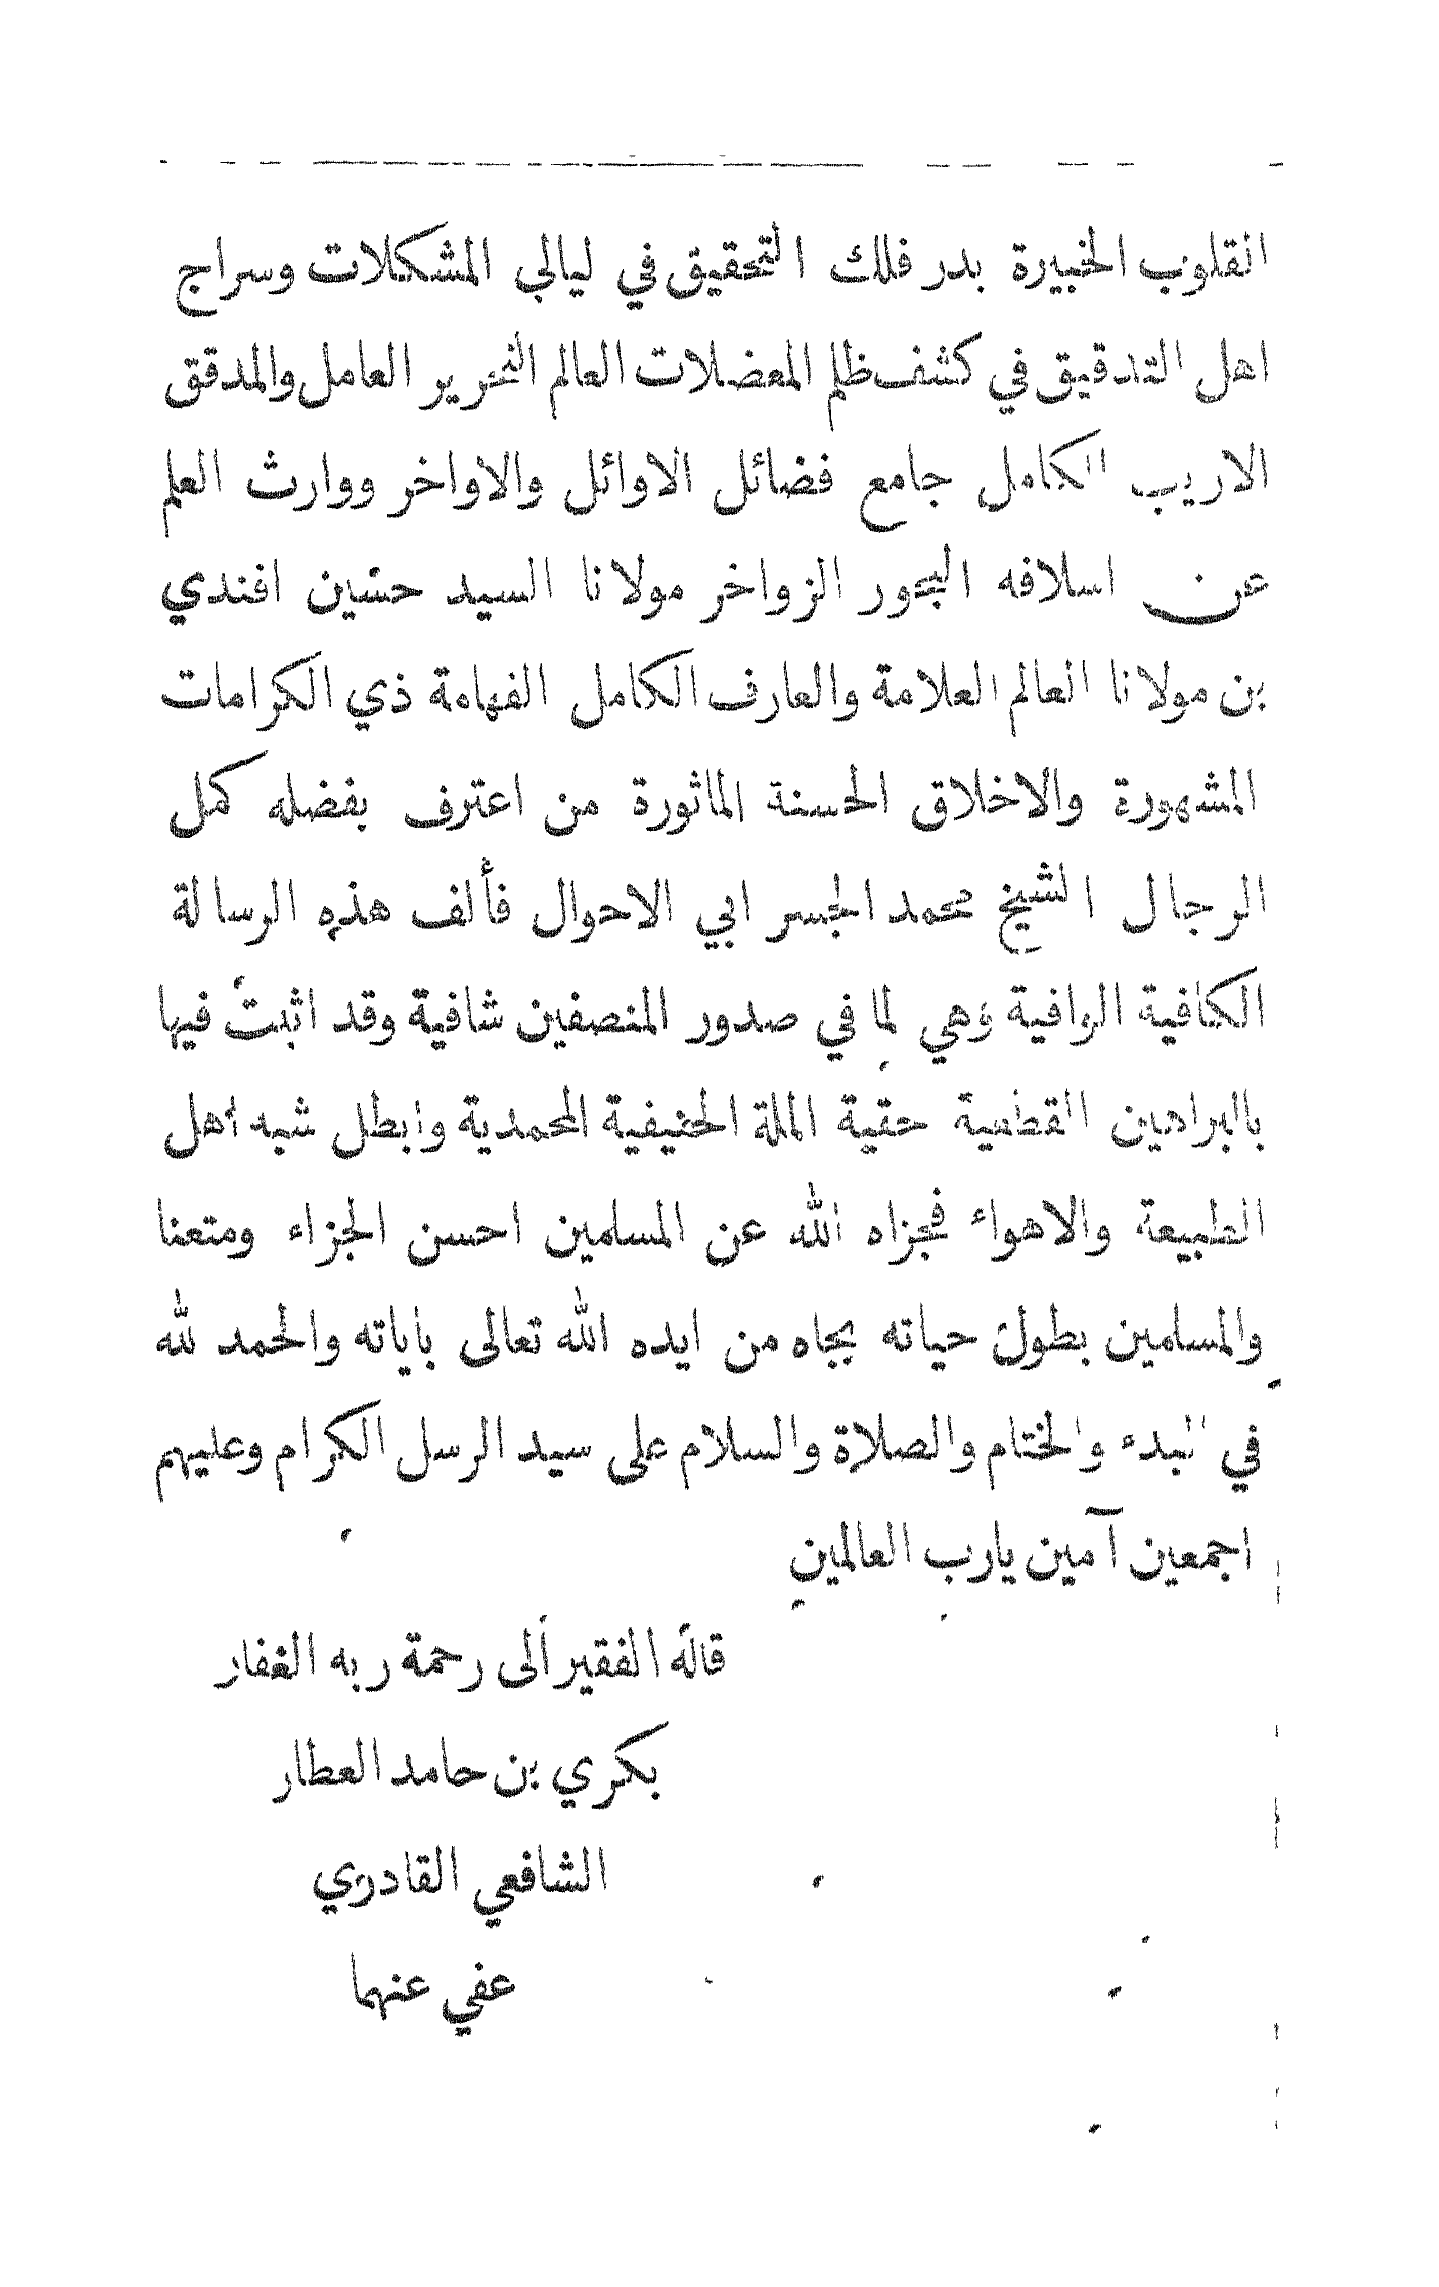 القلوب الخبيرة بدر فلك التحقيق في ليالي المشكلات وسراج
اهل التدقيق في كشف ظلم المعضلات العالم النحرير العامل والمدقق
الاريب الكامل جامع فضائل الاوائل والاواخر ووارث العلم
عن اسلافه البحور الزواخر مولانا السيد حسين افندي
بن مولانا العالم العلامة والعارف الكامل الفهامة ذي الكرامات
المشهورة والاخلاق الحسنة الماثورة من اعترف بفضله كمل
الرجال الشيخ محمد الجسر ابي الاحوال فألف هذه الرسالة
الكافية الوافية وهي لما في صدور المنصفين شافية وقد اثبت فيها
بالبراهين القطعية حقية الملة الحنيفية المحمدية وابطل شبه أهل
الطبيعة والاهواء فجزاه الله عن المسلمين احسن الجزاء ومتعنا
والمسلمين بطول حياته بجاه من ايده الله تعالى باياته والحمد لله
في البدء والختام والصلاة والسلام على سيد الرسل الكرام وعليهم
اجمعين آمين يارب العالمين
قاله الفقير الى رحمة ربه الغفار
بكري بن حامد العطار
الشافعي القادري
عفي عنهما